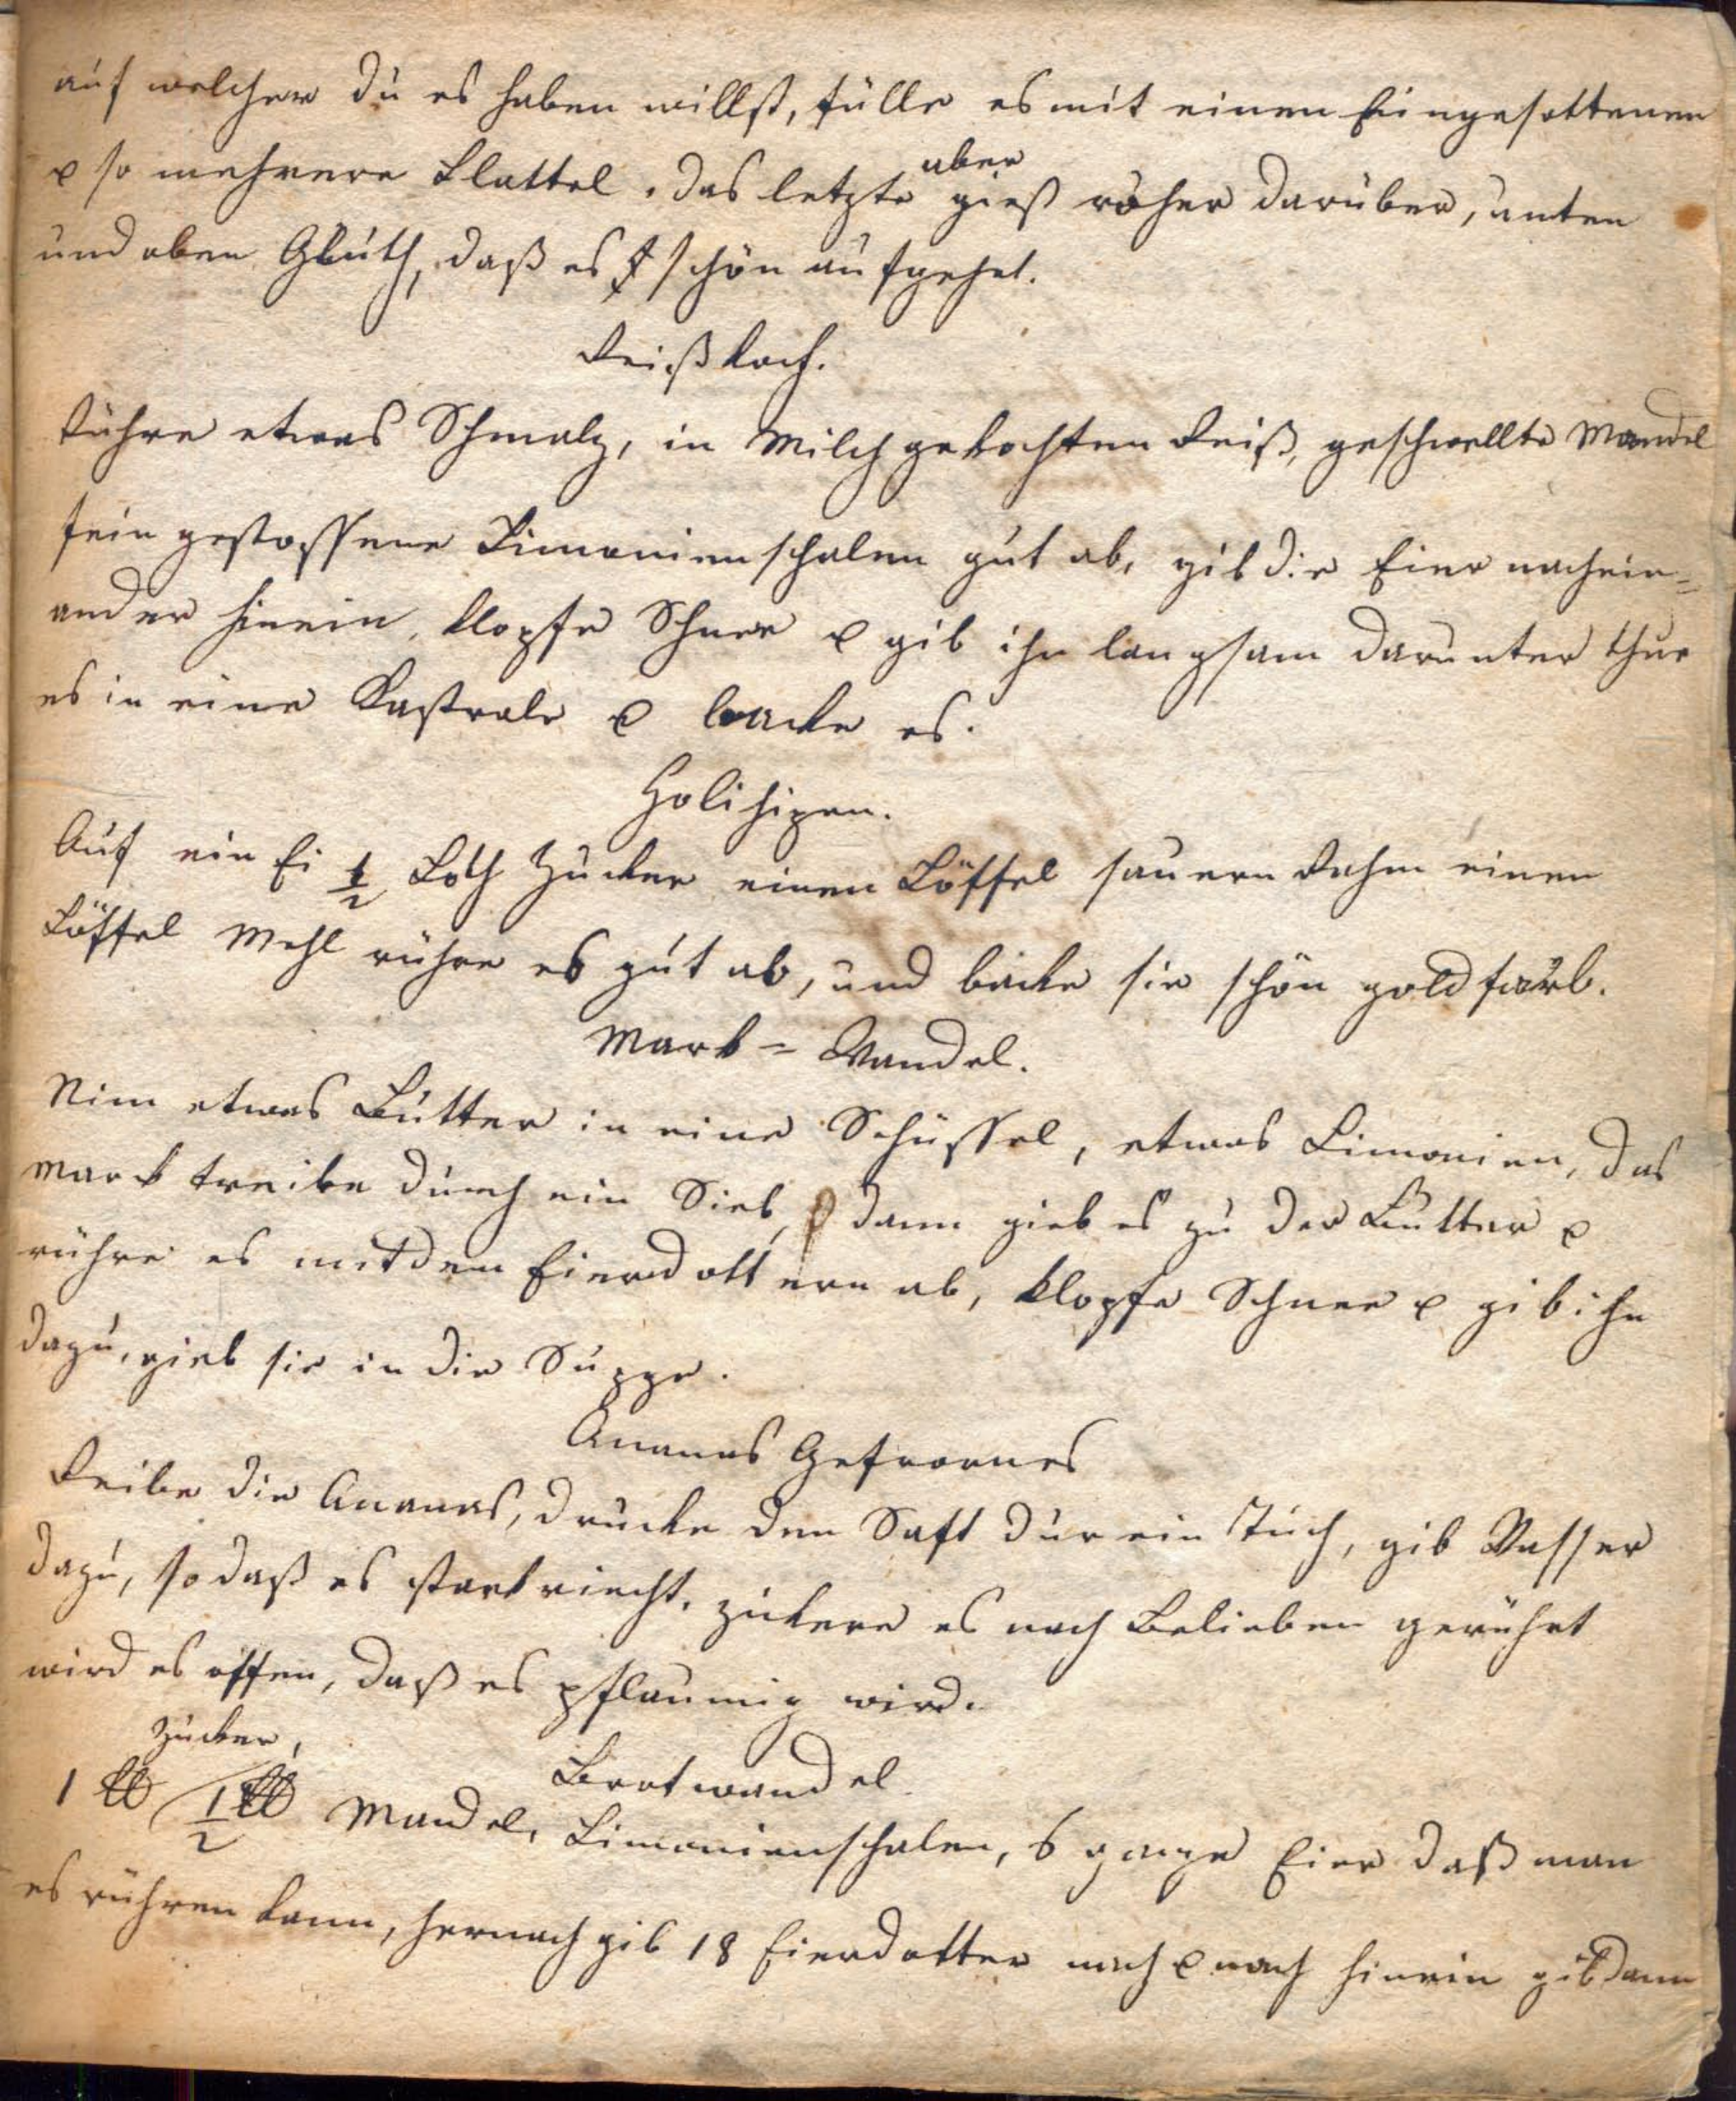 auf welcher du es haben willst, fülle es mit einen Eingesottenen
& so mehrere Blattel. das letzte aber gieß roher darüber, unten
und oben Gluth, daß es schön aufgehet.
Reißkoch.
Rühre etwas Schmalz, in Milch gekochten Reiß, geschwellte Mandel
fein gestossene Limonienschalen gut ab, gib die Eier nachein=
ander hinein, klopfe Schnee & gib ihn langsam darunter thue
es in eine Kastrole & backe es.
Holihipen.
Auf ein Ei 1/2 Loth Zucker einen Löffel sauern Rahm einen
Löffel Mehl rühre es gut ab, und backe sie schön goldfarb.
Mark=Wandel.
Nim etwas Butter in eine Schüssel, etwas Limonien, das
Mark treibe durch ein Sieb, dann gieb es zu der Butter &
rühre es mit den Eierdottern ab, klopfe Schnee & gib ihn
dazu, gieb sie in die Suppe.
Ananas Gefrornes
Reibe die Ananas, drucke den Saft dur ein Tuch, gib Wasser
dazu, so daß es stark riecht, zukere es nach Belieben gerührt
wird es offen, daß es pflaumig wird.
Brotwandel
Zucker,
1 ℔ 1/2 ℔ Mandel, Limonienschalen, 6 ganze Eier daß man
es rühren kann, hernach gib 18 Eierdotter nach & nach hinein gib dann